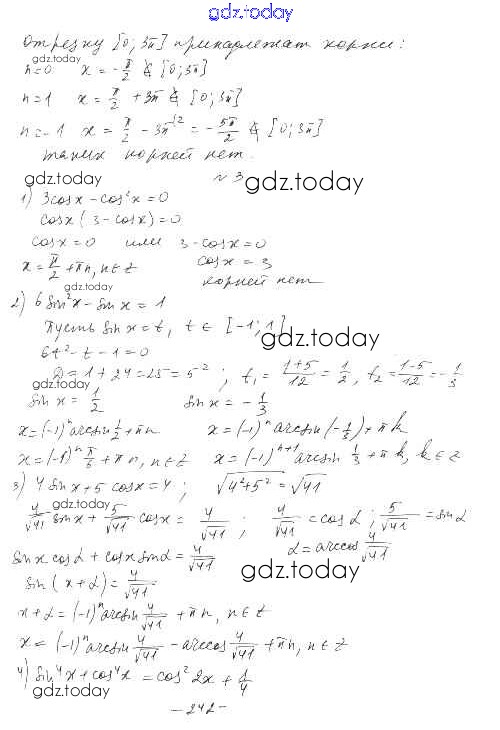 gdz.today
Отрезку [0; 3π] принадлежат корни:
gdz.today
n=0 x = -π/2 ∉ [0; 3π]
n=1 x = π/2 + 3π ∉ [0; 3π]
n=-1 x = π/2 - 3π = -5π/2 ∉ [0; 3π]
таких корней нет.
gdz.today
№3
gdz.today
1) 3cosx - cos²x = 0
cosx(3 - cosx) = 0
cosx = 0 или 3 - cosx = 0
x = π/2 + πn, n∈Z cosx = 3
корней нет
2) 6sin²x - sinx = 1
Пусть sinx = t, t ∈ [-1; 1]
gdz.today
6t² - t - 1 = 0
D = 1 + 24 = 25 = 5²; t₁ = (1+5)/12 = 1/2, t₂ = (1-5)/12 = -1/3
gdz.today
sinx = 1/2 sinx = -1/3
x = (-1)ⁿ arcsin 1/2 + πn x = (-1)ⁿ arcsin(-1/3) + πk
x = (-1)ⁿ π/6 + πn, n∈Z x = (-1)ⁿ⁺¹ arcsin 1/3 + πk, k∈Z
3) 4sinx + 5cosx = 4; √(4²+5²) = √41
gdz.today
4/√41 sinx + 5/√41 cosx = 4/√41; 4/√41 = cosα; 5/√41 = sinα
α = arccos 4/√41
sinx cosα + cosx sinα = 4/√41
gdz.today
sin(x+α) = 4/√41
x+α = (-1)ⁿ arcsin 4/√41 + πn, n∈Z
x = (-1)ⁿ arcsin 4/√41 - arccos 4/√41 + πn, n∈Z
4) sin⁴x + cos⁴x = cos²2x + 1/4
gdz.today
- 242 -